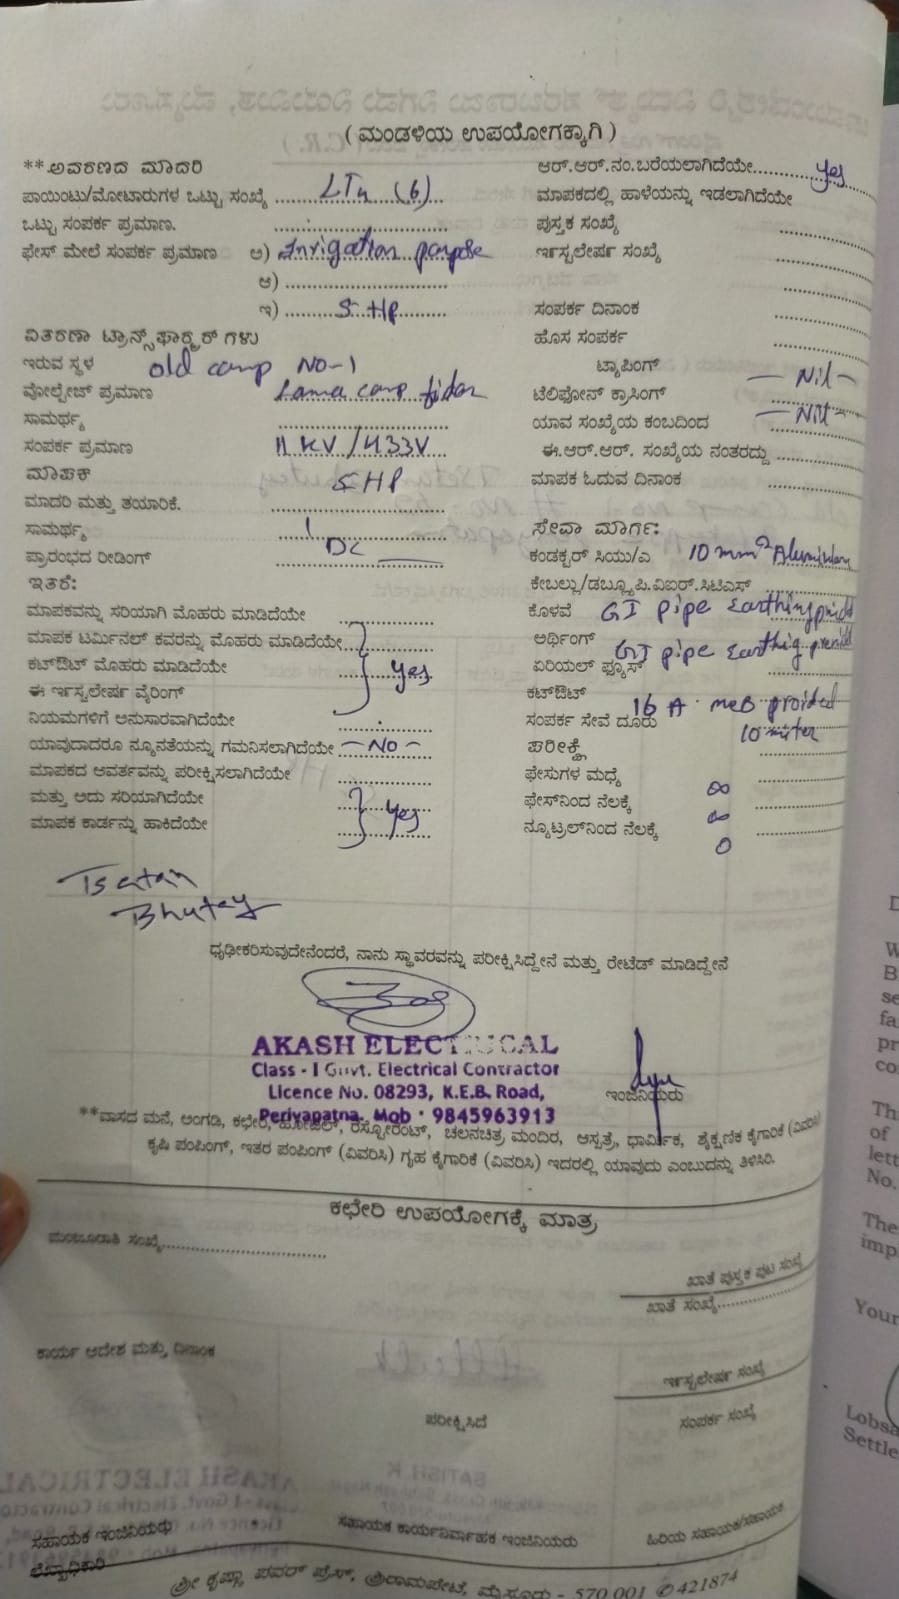 ( ಮಂಡಳಿಯ ಉಪಯೋಗಕ್ಕಾಗಿ )
**ಅವರಣದ ಮಾದರಿ
ಪಾಯಿಂಟು/ಮೋಟಾರುಗಳ ಒಟ್ಟು ಸಂಖ್ಯೆ LT4 (6)
ಒಟ್ಟು ಸಂಪರ್ಕ ಪ್ರಮಾಣ.
ಫೇಸ್ ಮೇಲೆ ಸಂಪರ್ಕ ಪ್ರಮಾಣ ಅ) Irrigation
ಆ)
ಇ) 5 HP
ವಿತರಣಾ ಟ್ರಾನ್ಸ್‌ಫಾರ್ಮರ್ ಗಳು
ಇರುವ ಸ್ಥಳ old camp No-1
ವೋಲ್ಟೇಜ್ ಪ್ರಮಾಣ Lama camp
ಸಾಮರ್ಥ್ಯ
ಸಂಪರ್ಕ ಪ್ರಮಾಣ 11 KV/433V
ಮಾಪಕ 5 HP
ಮಾದರಿ ಮತ್ತು ತಯಾರಿಕೆ.
ಸಾಮರ್ಥ್ಯ
ಪ್ರಾರಂಭದ ರೀಡಿಂಗ್ DC
ಇತರೆ:
ಮಾಪಕವನ್ನು ಸರಿಯಾಗಿ ಮೊಹರು ಮಾಡಿದೆಯೇ
ಮಾಪಕ ಟರ್ಮಿನಲ್ ಕವರನ್ನು ಮೊಹರು ಮಾಡಿದೆಯೇ
ಕಟ್‌ಔಟ್ ಮೊಹರು ಮಾಡಿದೆಯೇ Yes
ಈ ಇನ್‌ಸ್ಟಲೇಷನ್ ವೈರಿಂಗ್
ನಿಯಮಗಳಿಗೆ ಅನುಸಾರವಾಗಿದೆಯೇ
ಯಾವುದಾದರೂ ನ್ಯೂನತೆಯನ್ನು ಗಮನಿಸಲಾಗಿದೆಯೇ - No -
ಮಾಪಕದ ಆವರ್ತವನ್ನು ಪರೀಕ್ಷಿಸಲಾಗಿದೆಯೇ
ಮತ್ತು ಅದು ಸರಿಯಾಗಿದೆಯೇ Yes
ಮಾಪಕ ಕಾರ್ಡನ್ನು ಹಾಕಿದೆಯೇ
ಆರ್.ಆರ್.ನಂ.ಬರೆಯಲಾಗಿದೆಯೇ Yes
ಮಾಪಕದಲ್ಲಿ ಹಾಳೆಯನ್ನು ಇಡಲಾಗಿದೆಯೇ
ಪುಸ್ತಕ ಸಂಖ್ಯೆ
ಇನ್‌ಸ್ಟಲೇಷನ್ ಸಂಖ್ಯೆ
ಸಂಪರ್ಕ ದಿನಾಂಕ
ಹೊಸ ಸಂಪರ್ಕ
ಟ್ಯಾಪಿಂಗ್
ಟೆಲಿಫೋನ್ ಕ್ರಾಸಿಂಗ್ - Nil -
ಯಾವ ಸಂಖ್ಯೆಯ ಕಂಬದಿಂದ - Nil -
ಈ.ಆರ್.ಆರ್. ಸಂಖ್ಯೆಯ ನಂತರದ್ದು
ಮಾಪಕ ಓದುವ ದಿನಾಂಕ
ಸೇವಾ ಮಾರ್ಗ:
ಕಂಡಕ್ಟರ್ ಸಿಯು/ಎ 10 mm² Aluminium
ಕೇಬಲ್ಲು/ಡಬ್ಲ್ಯೂ.ಪಿ.ವಿಐಆರ್.ಸಿಟಿಎಸ್
ಕೊಳವೆ GI pipe Earthing
ಅರ್ಥಿಂಗ್ GI pipe
ಏರಿಯಲ್ ಫ್ಯೂಸ್
ಕಟ್‌ಔಟ್ 16 A MCB
ಸಂಪರ್ಕ ಸೇವೆ ದೂರು 10 miter
ಪರೀಕ್ಷೆ
ಫೇಸುಗಳ ಮಧ್ಯೆ ∞
ಫೇಸ್‌ನಿಂದ ನೆಲಕ್ಕೆ ∞
ನ್ಯೂಟ್ರಲ್‌ನಿಂದ ನೆಲಕ್ಕೆ 0
Tsetan
Bhutey
ಧೃಢೀಕರಿಸುವುದೇನೆಂದರೆ, ನಾನು ಸ್ಥಾವರವನ್ನು ಪರೀಕ್ಷಿಸಿದ್ದೇನೆ ಮತ್ತು ರೇಟೆಡ್ ಮಾಡಿದ್ದೇನೆ
AKASH ELECTRICAL
Class - I Govt. Electrical Contractor
Licence No. 08293, K.E.B. Road,
Periyapatna. Mob : 9845963913
ಇಂಜಿನಿಯರು
**ವಾಸದ ಮನೆ, ಅಂಗಡಿ, ಕಛೇರಿ, ಹೋಟೆಲ್, ರೆಸ್ಟೋರೆಂಟ್, ಚಲನಚಿತ್ರ ಮಂದಿರ, ಆಸ್ಪತ್ರೆ, ಧಾರ್ಮಿಕ, ಶೈಕ್ಷಣಿಕ ಕೈಗಾರಿಕೆ (ವಿವರಿಸಿ)
ಕೃಷಿ ಪಂಪಿಂಗ್, ಇತರ ಪಂಪಿಂಗ್ (ವಿವರಿಸಿ) ಗೃಹ ಕೈಗಾರಿಕೆ (ವಿವರಿಸಿ) ಇದರಲ್ಲಿ ಯಾವುದು ಎಂಬುದನ್ನು ತಿಳಿಸಿರಿ.
ಕಛೇರಿ ಉಪಯೋಗಕ್ಕೆ ಮಾತ್ರ
ಮಂಜೂರಾತಿ ಸಂಖ್ಯೆ
ಖಾತೆ ಪುಸ್ತಕ ಪುಟ ಸಂಖ್ಯೆ
ಖಾತೆ ಸಂಖ್ಯೆ
ಕಾರ್ಯ ಆದೇಶ ಮತ್ತು ದಿನಾಂಕ
ಇನ್‌ಸ್ಟಲೇಷನ್ ಸಂಖ್ಯೆ
ಪರೀಕ್ಷಿಸಿದೆ
ಸಂಪರ್ಕ ಸಂಖ್ಯೆ
ಸಹಾಯಕ ಇಂಜಿನಿಯರು
ಸಹಾಯಕ ಕಾರ್ಯನಿರ್ವಾಹಕ ಇಂಜಿನಿಯರು
ಹಿರಿಯ ಸಹಾಯಕ/ಸಹಾಯಕ
ಲೆಖ್ಖಾಧಿಕಾರಿ
ಶ್ರೀ ಕೃಷ್ಣಾ ಪವರ್ ಪ್ರೆಸ್, ಶ್ರೀರಾಮಪೇಟೆ, ಮೈಸೂರು - 570 001 ✆ 421874